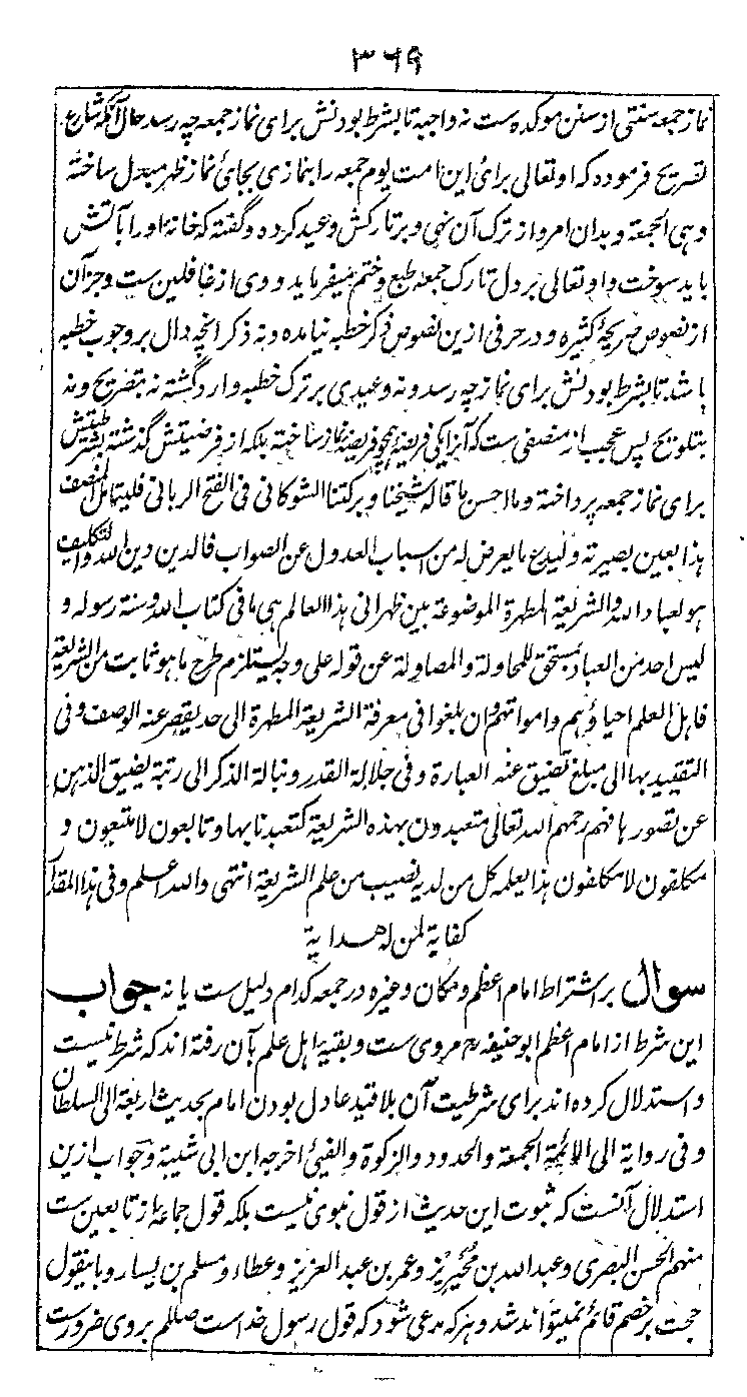 ۳۶۹
نماز جمعه سنتی از سنن موکده ست نه واجبه تا بشرط بودنش برای نماز جمعه چه رسد حال آنکه شارع
تصریح فرموده که اوتعالی برای این امت یوم جمعه را بنمازی بجای نماز ظهر مبدل ساخته
وهی الجمعة وبدان امر و از ترک آن نهی و بر تارکش وعید کرده و گفته که خانهٔ او را بآتش
باید سوخت و اوتعالی بر دل تارک جمعه طبع و ختم میفرماید و وی از غافلین ست و جز آن
از نصوص صریحهٔ کثیره و در حرفی ازین نصوص ذکر خطبه نیامده و نه ذکر انچه دال بر وجوب خطبه
باشد تا بشرط بودنش برای نماز چه رسد و نه وعیدی بر ترک خطبه وارد گشته نه بتصریح و نه
بتلویح پس عجب از منصفی ست که آنرا یکی فریضهٔ همچو فریضهٔ نماز ساخته بلکه از فرضیتش گذشته بشرطیتش
برای نماز جمعه پرداخته وما احسن ما قاله شیخنا وبرکتنا الشوکانی فی الفتح الربانی فلیتامل المنصف
هذا بعین بصیرته ولیدع ما یعرض له من اسباب العدول عن الصواب فالدین دین الله والتکلیف
هو لعباد الله والشریعة المطهرة الموضوعة بین ظهرانی هذا العالم هی ما فی کتاب الله وسنة رسوله و
لیس احد من العباد بمستحق للمحاولة والمصاولة عن قوله علی وجه یستلزم طرح ما هو ثابت من الشریعة
فاهل العلم احیاؤهم وامواتهم وان بلغوا فی معرفة الشریعة المطهرة الی حد یقصر عنه الوصف وفی
التقیید بها الی مبلغ تضیق عنه العبارة وفی جلالة القدر ونبالة الذکر الی رتبة یضیق الذهن
عن تصورها فهم رحمهم الله تعالی متعبدون بهذه الشریعة کتعبدنا بها وتابعون لا متبعون و
مکلفون لا مکلفون هذا یعلمه کل من لدیه نصیب من علم الشریعة انتهی والله اعلم وفی هذا المقدار
کفایة لمن له هدایة
سوال بر اشتراط امام اعظم و مکان و غیره در جمعه کدام دلیل ست یا نه جواب
این شرط از امام اعظم ابو حنیفه رح مروی ست و بقیه اهل علم بآن رفته اند که شرط نیست
و استدلال کرده اند برای شرطیت آن بلا قید عادل بودن امام بحدیث اربعة الی السلطان
وفی روایة الی الائمة الجمعة والحدود والزکوة والفیئ اخرجه ابن ابی شیبة وجواب ازین
استدلال آنست که ثبوت این حدیث از قول نبوی نیست بلکه قول جماعهٔ از تابعین ست
منهم الحسن البصری وعبد الله بن محیریز وعمر بن عبد العزیز وعطاء ومسلم بن یسار وباینقول
حجت بر خصم قائم نمیتواند شد و هر که مدعی شود که قول رسول خداست صللم بر وی ضرورست